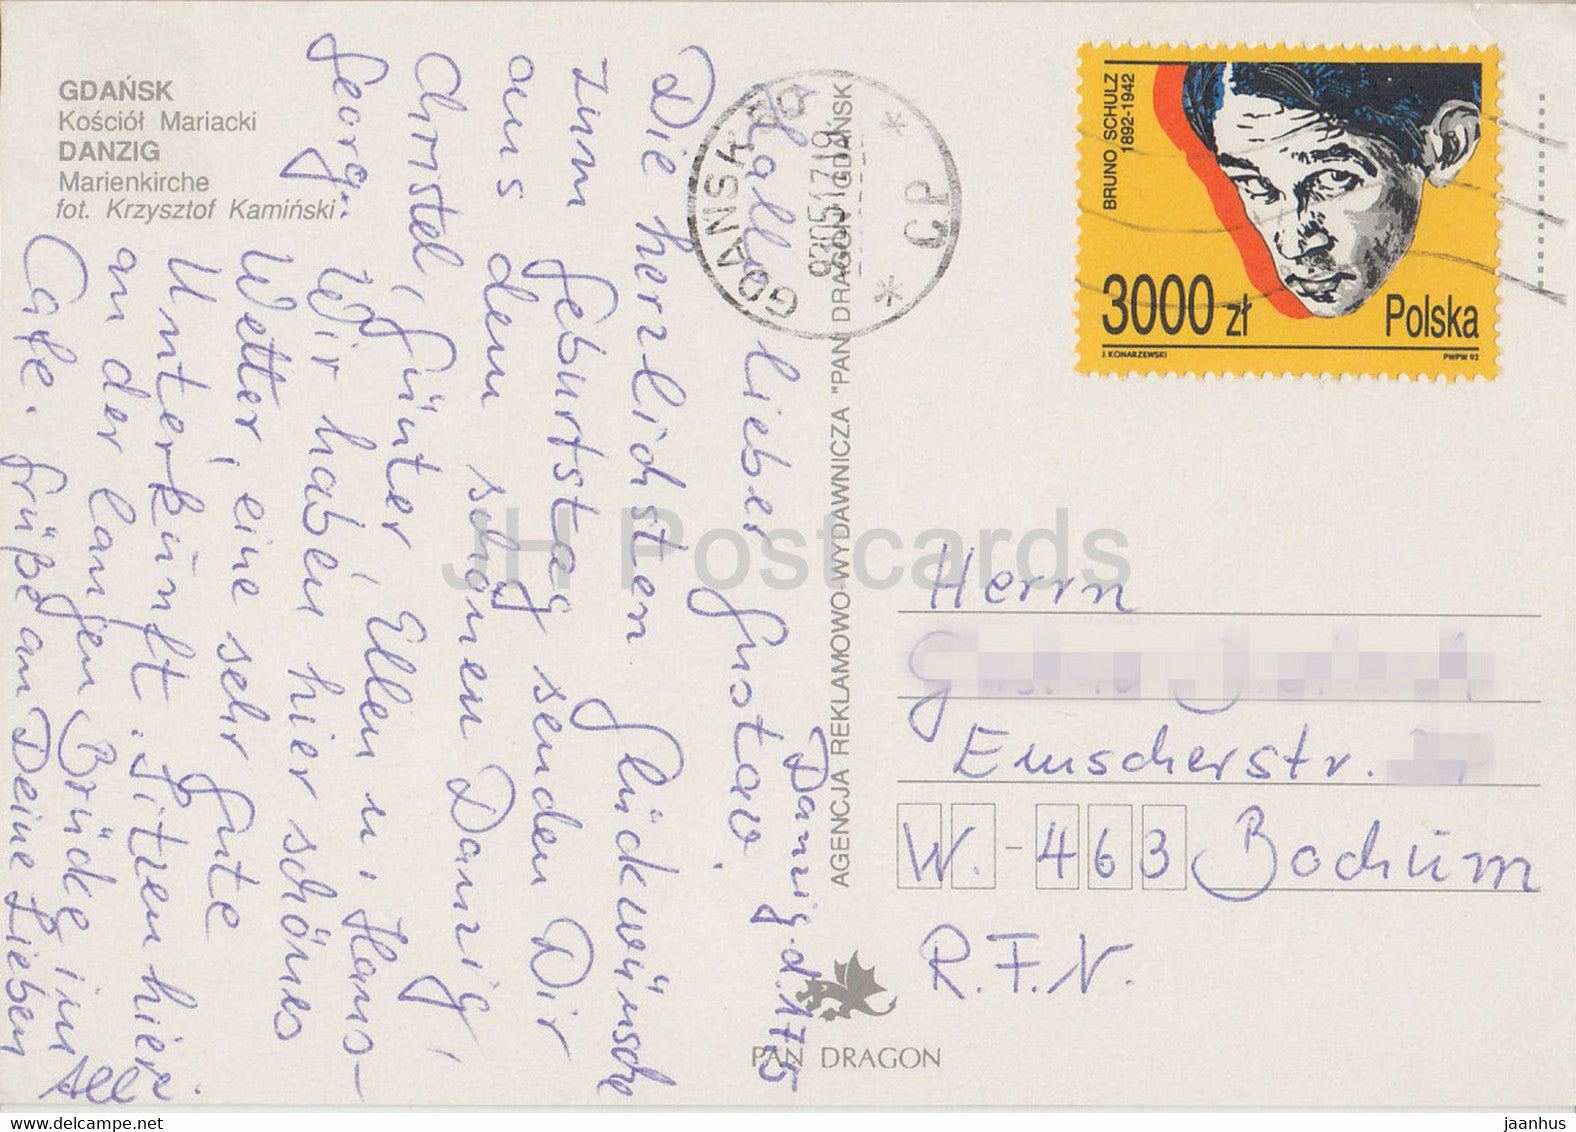 GDAŃSK
Kościół Mariacki
DANZIG
Marienkirche
fot. Krzysztof Kamiński
Danzig, d. 17.5
Hallo lieber Gustav.
Die herzlichsten Glückwünsche
zum Geburtstag senden Dir
aus dem schönen Danzig,
Christel, Günter, Ellen u. Hans-
Georg. Wir haben hier schönes
Wetter, eine sehr gute
Unterkunft. Sitzen hier
an der langen Brücke im
Cafe. Grüße an Deine Lieben
All
AGENCJA REKLAMOWO-WYDAWNICZA "PAN DRAGON" GDAŃSK
PAN DRAGON
GDAŃSK
93051719
CP
BRUNO SCHULZ
1892-1942
3000 zł
Polska
J. KONARZEWSKI
PWPW 92
Herrn
Emscherstr.
W. - 463 Bochum
R.F.N.
JH Postcards
jaanhus
delcampe.net